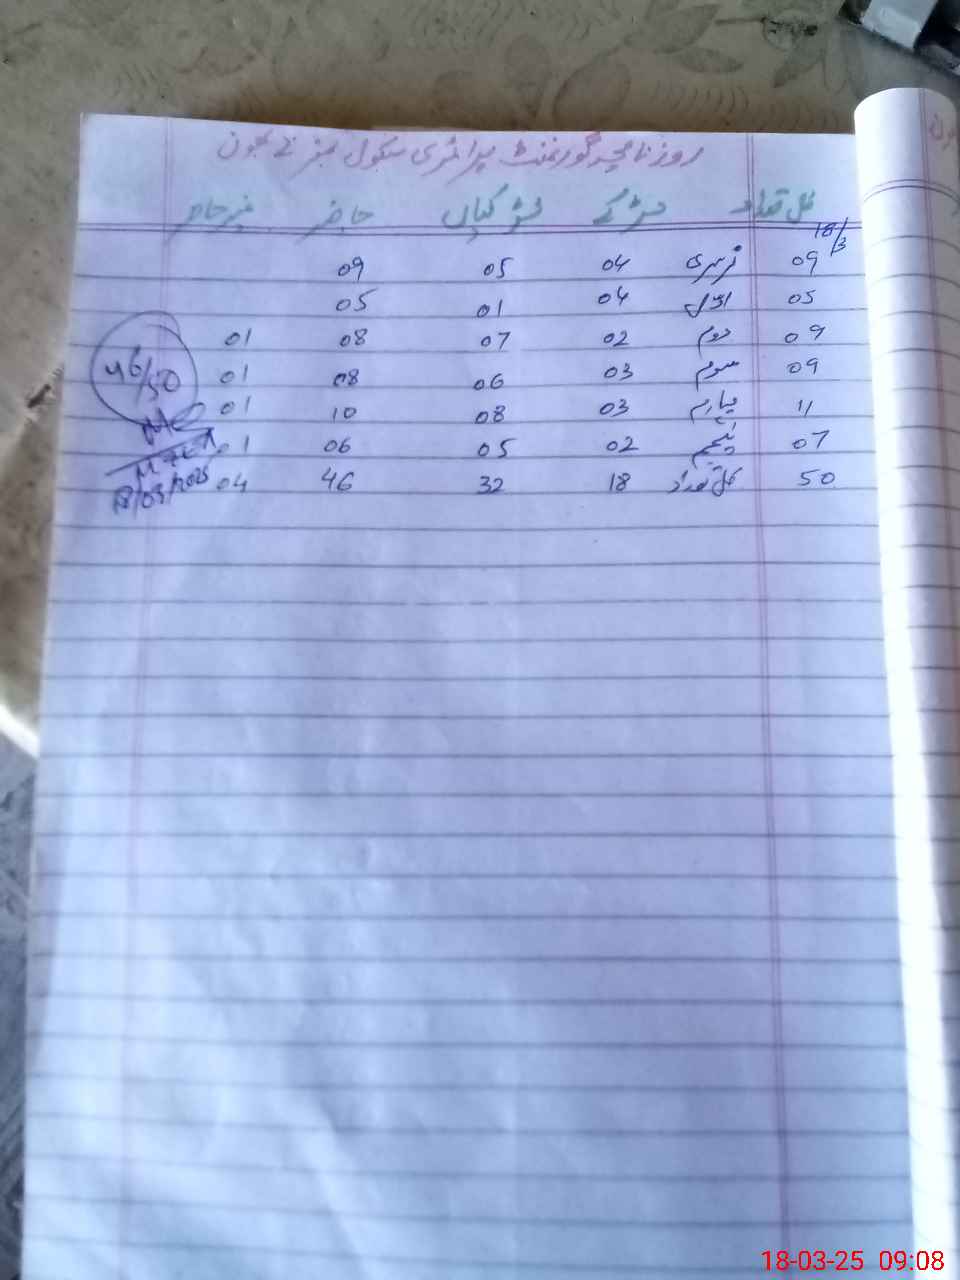 روزنامچہ گورنمنٹ پرائمری سکول
کل تعداد لڑکے لڑکیاں حاضر غیر حاضر
18/3
09 نرسری 04 05 09
05 اول 04 01 05
09 دوم 02 07 08 01
09 سوم 03 06 08 01
11 چہارم 03 08 10 01
07 پنجم 02 05 06 01
50 کل تعداد 18 32 46 04
46/50
18/03/2025
18-03-25 09:08